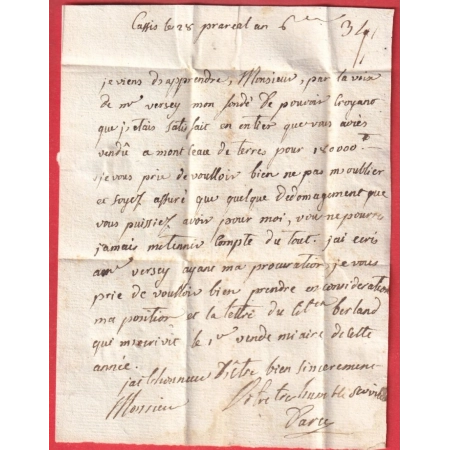 Cassis le 28 prareal an 6
je viens d'apprendre, Monsieur, par la voix
de mr versey mon fondé de pouvoir croyans
que j'etais satisfait en entier que vous aviès
vendû a mont leau de terres pour 180000
je vous prie de voulloir bien ne pas m'oublier
et soyez assuré que quelque dedomagement que
vous puissiez avoir pour moi, vou ne pourrez
jamais me tennir compte du tout. j'ai ecris
a mr versey ayant ma procuration, je vous
prie de voulloir bien prendre en consideration
ma position et la lettre du Citen berland
qui m'ecrivit le 1er vendemiaire de cette
année.
j'ai l'honneur d'etre bien sincerement
Monsieur
Votre tres humble